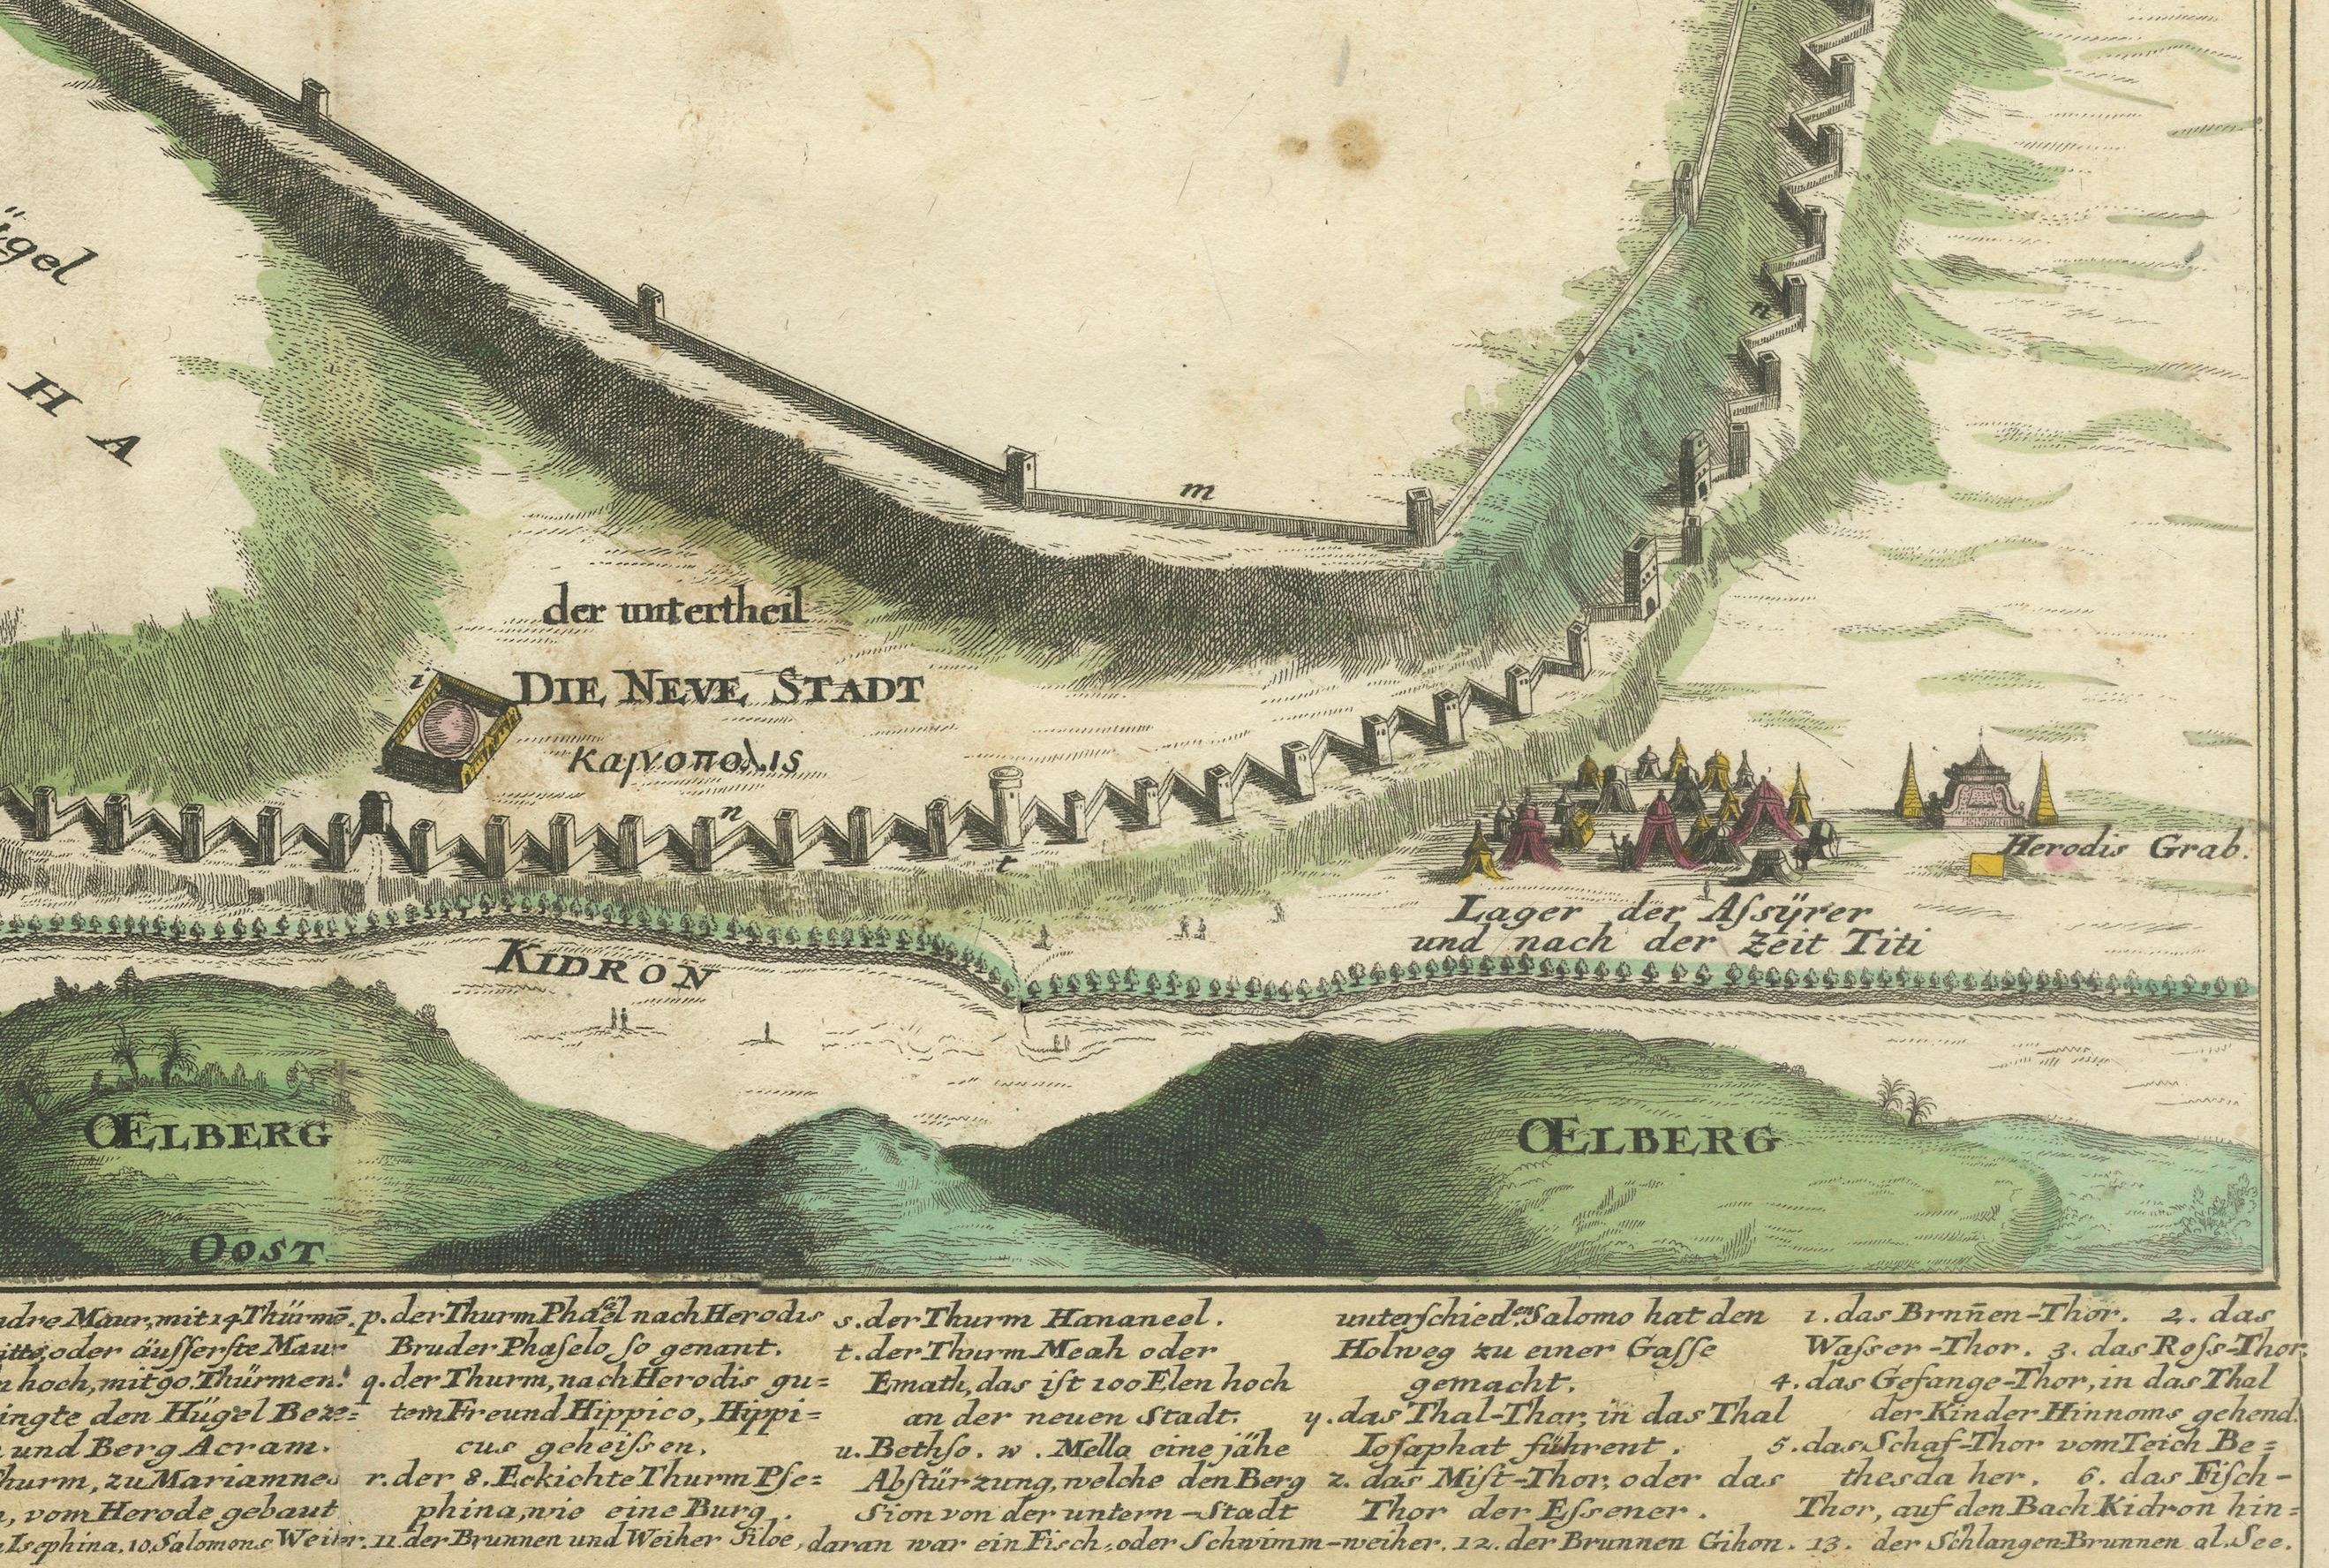 ügel
H
A
m
n
der untertheil
i
DIE NEVE STADT
καινοπολις
n
t
Herodis Grab.
Lager der Aſsÿrer
und nach der Zeit Titi
KIDRON
ŒLBERG
ŒLBERG
OOST
Maur, mit 14 Thürmē.
oder äuſſerſte Maur
hoch, mit 90. Thürmen.
den Hügel Beze=
und Berg Acram.
zu Mariamnes
vom Herode gebaut
p. der Thurm Phaſäel nach Herodis
Bruder Phaſelo, ſo genant.
q. der Thurm, nach Herodis gu=
tem Freund Hippico, Hippi=
cus geheiſsen.
r. der 8. Eckichte Thurm Pſe=
phina, wie eine Burg.
s. der Thurm Hananeel.
t. der Thurm Meah oder
Emath, das iſt 100 Elen hoch
an der neuen Stadt.
u. Bethſo. w. Mella eine jähe
Abſtürzung, welche den Berg
Sion von der untern-Stadt
unterſchied.en Salomo hat den
Holweg zu einer Gaſſe
gemacht.
y. das Thal-Thor, in das Thal
Ioſaphat führent.
z. das Miſt-Thor, oder das
Thor der Eſsener.
1. das Brun̄en-Thor. 2. das
Waſser-Thor. 3. das Roſs-Thor.
4. das Gefange-Thor, in das Thal
der Kinder Hinnoms gehend.
5. das Schaf-Thor vom Teich Be=
thesda her. 6. das Fiſch-
Thor, auf den Bach Kidron hin=
10. Salomons Weiher. 11. der Brunnen und Weiher Siloe, daran war ein Fiſch, oder Schwimm-weiher. 12. der Brunnen Gihon. 13. der Schlangen-Brunnen al. See.